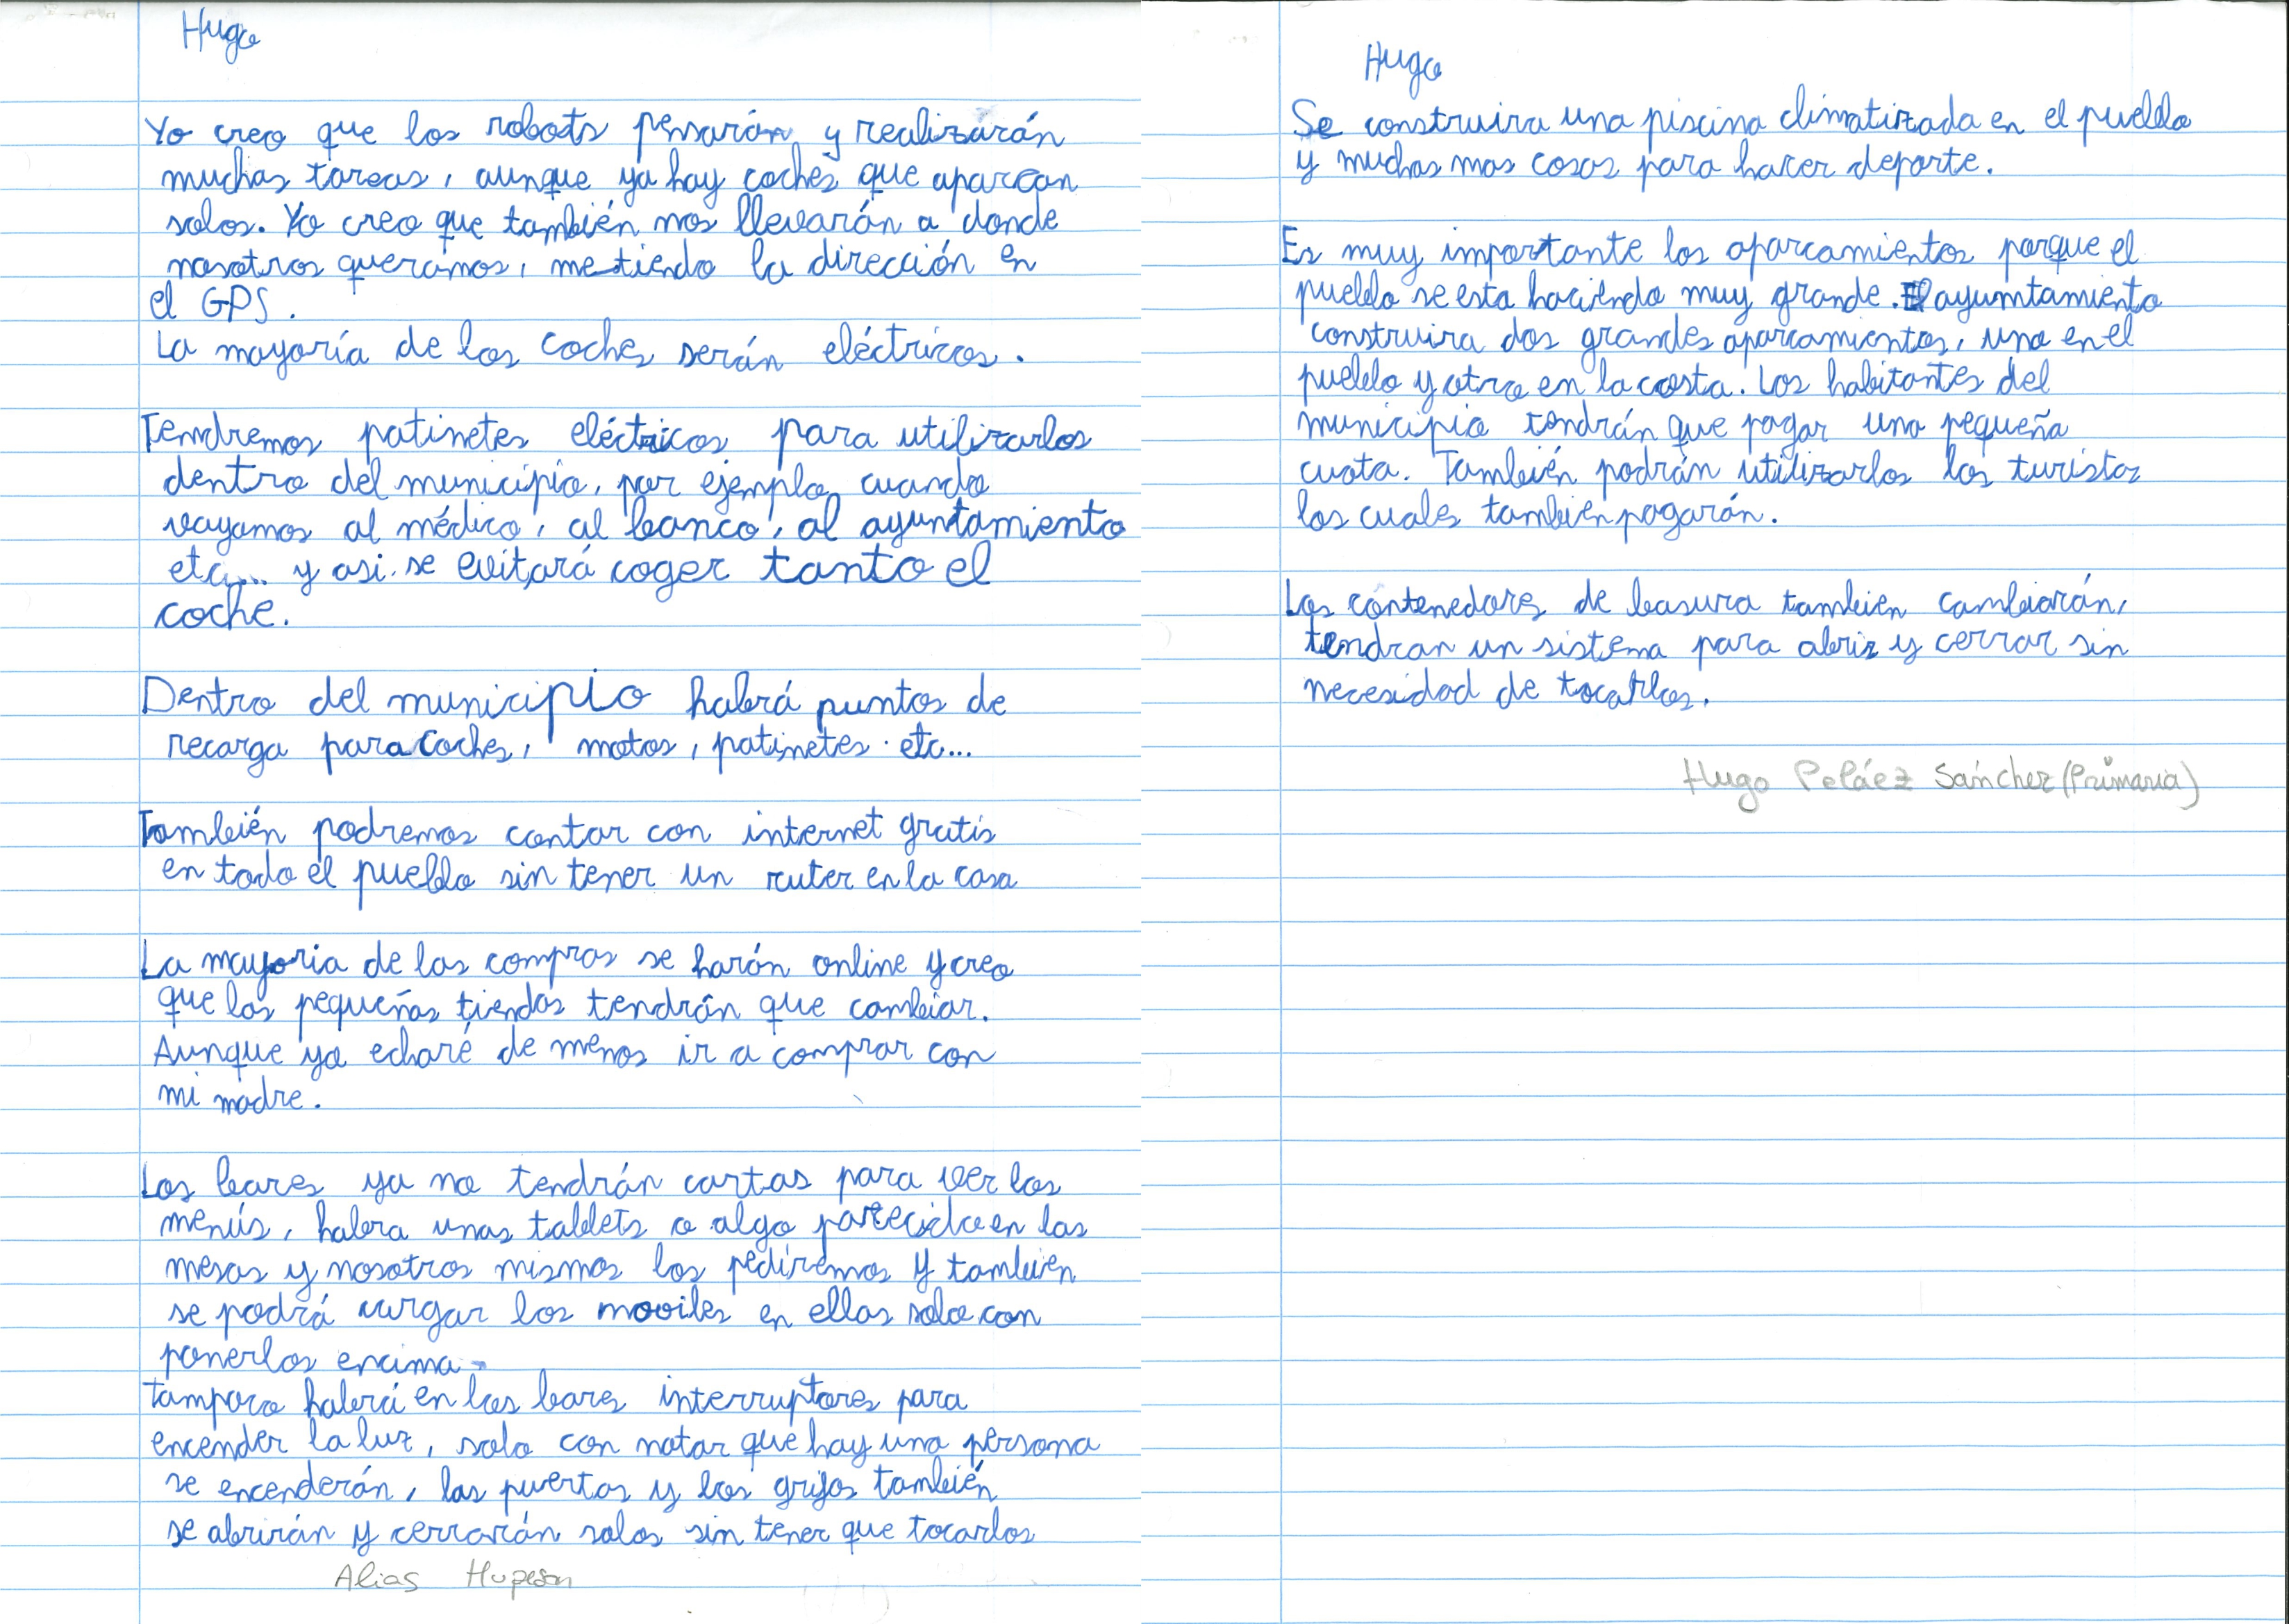 Hugo
Yo creo que los robots pensarán y realizarán
muchas tareas, aunque ya hay coches que aparcan
solos. Yo creo que también nos llevarán a donde
nosotros queramos, metiendo la dirección en
el GPS.
La mayoría de los coches serán eléctricos.
Tendremos patinetes eléctricos para utilizarlos
dentro del municipio, por ejemplo cuando
vayamos al médico, al banco, al ayuntamiento
etc... y asi se evitará coger tanto el
coche.
Dentro del municipio habrá puntos de
recarga para coches, motos, patinetes etc...
También podremos contar con internet gratis
en todo el pueblo sin tener un ruter en la casa
La mayoria de las compras se harán online y creo
que las pequeñas tiendas tendrán que cambiar.
Aunque yo echaré de menos ir a comprar con
mi madre.
Los bares ya no tendrán cartas para ver los
menús, habra unas tablets o algo parecido en las
mesas y nosotros mismos los pediremos y tambien
se podrá cargar los moviles en ellas solo con
ponerlos encima.
tampoco habrá en los bares interruptores para
encender la luz, solo con notar que hay una persona
se encenderán, las puertas y los grifos también
se abrirán y cerrarán solos sin tener que tocarlos
Alias Hupesan
Hugo
Se construira una piscina climatizada en el pueblo
y muchas mas cosas para hacer deporte.
Es muy importante los aparcamientos porque el
pueblo se esta haciendo muy grande. El ayumtamiento
construira dos grandes aparcamientos, uno en el
pueblo y otro en la costa. Los habitantes del
municipio tendrán que pagar una pequeña
cuota. También podrán utilizarlos los turistas
los cuales también pagarán.
Los contenedores de basura tambien cambiarán,
tendran un sistema para abrir y cerrar sin
necesidad de tocarlos.
Hugo Peláez Sánchez (Primaria)